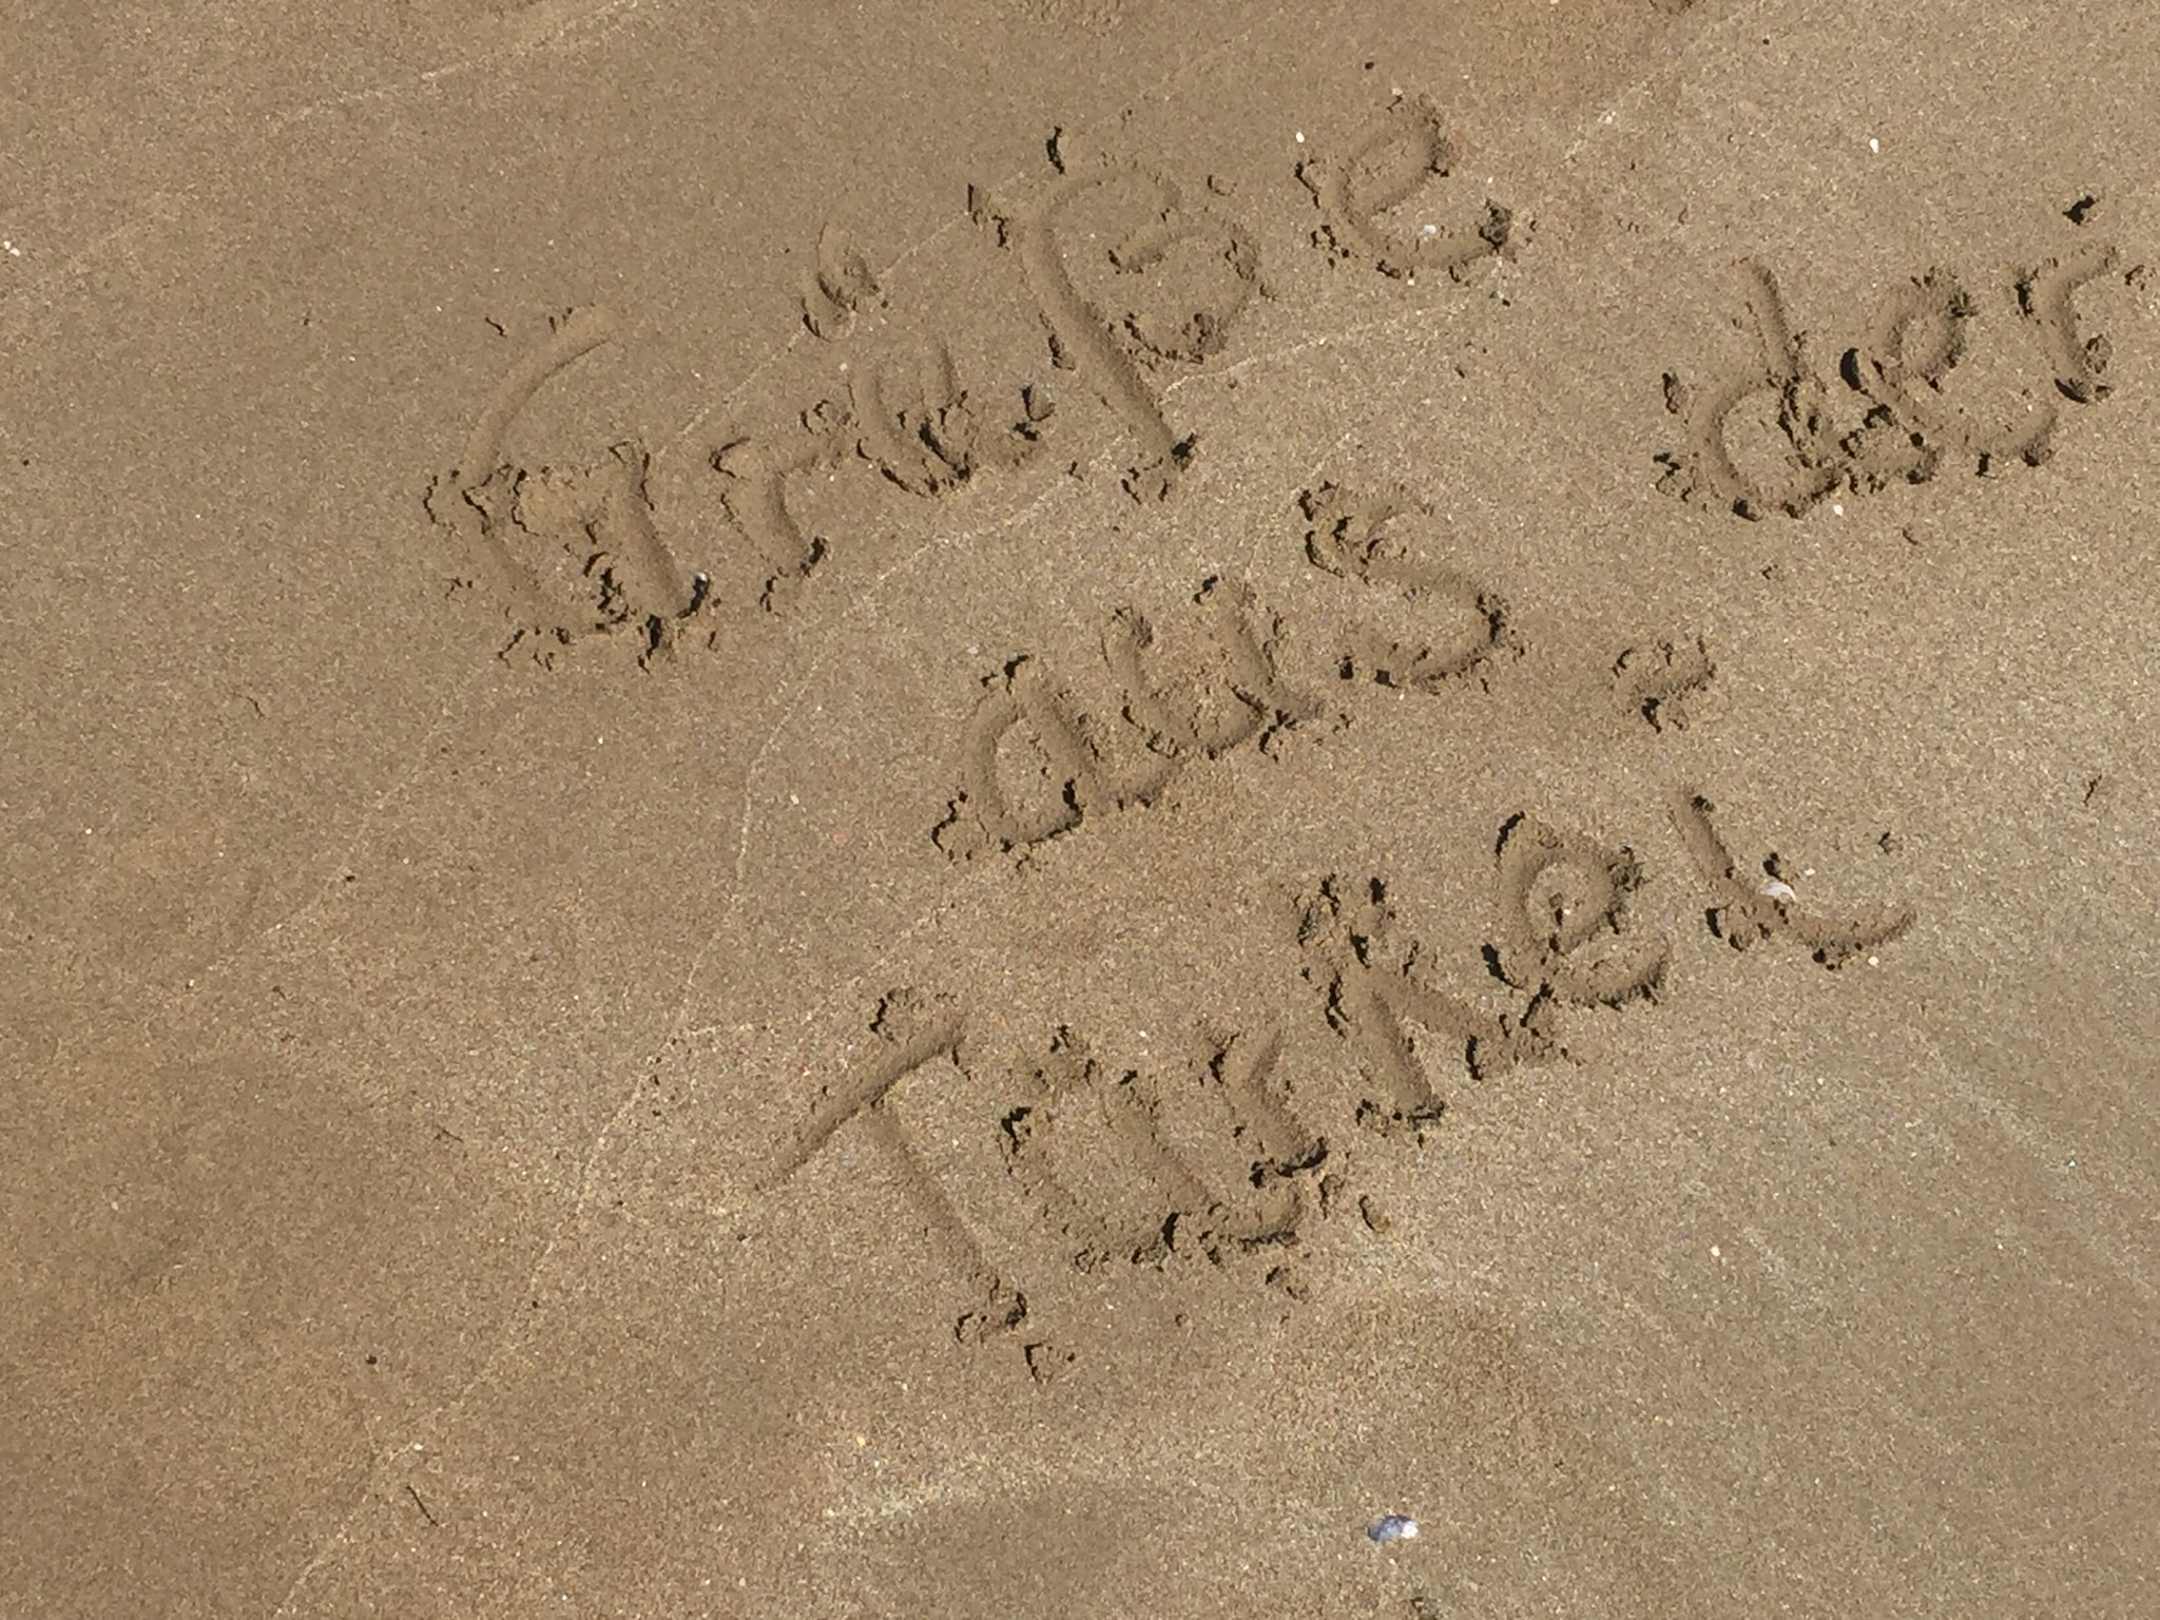 Grüße
aus der
Türkei